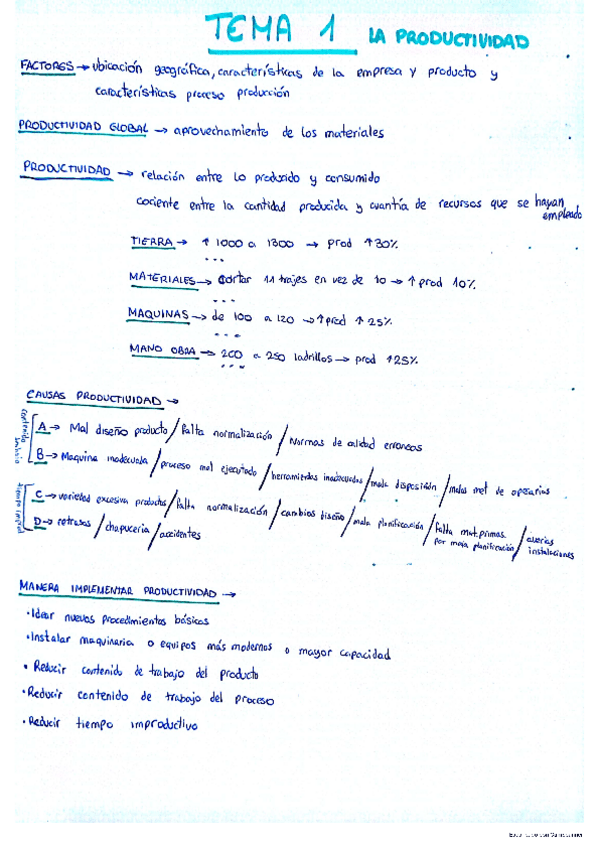 TEMA 1 LA PRODUCTIVIDAD
FACTORES → ubicación geográfica, características de la empresa y producto y
características proceso producción
PRODUCTIVIDAD GLOBAL → aprovechamiento de los materiales
PRODUCTIVIDAD → relación entre lo producido y consumido
cociente entre la cantidad producida y cuantía de recursos que se hayan
empleado
TIERRA → ↑ 1000 a 1300 → prod ↑30%
...
MATERIALES → cortar 11 trajes en vez de 10 → ↑ prod 10%
...
MAQUINAS → de 100 a 120 → ↑ prod ↑ 25%
...
MANO OBRA → 200 a 250 ladrillos → prod ↑25%
...
CAUSAS PRODUCTIVIDAD →
contenido trabajo
A → Mal diseño producto / falta normalización / Normas de calidad erroneas
B → Maquina inadecuada / proceso mal ejecutado / herramientas inadecuadas / mala disposición / malos met de operarios
C → variedad excesiva productos / falta normalización / cambios diseño / mala planificación / falta mat.primas / averias
por mala planificación instalaciones
D → retrasos / chapuceria / accidentes
MANERA IMPLEMENTAR PRODUCTIVIDAD →
• Idear nuevos procedimientos básicos
• Instalar maquinaria o equipos más modernos o mayor capacidad
• Reducir contenido de trabajo del producto
• Reducir contenido de trabajo del proceso
• Reducir tiempo improductivo